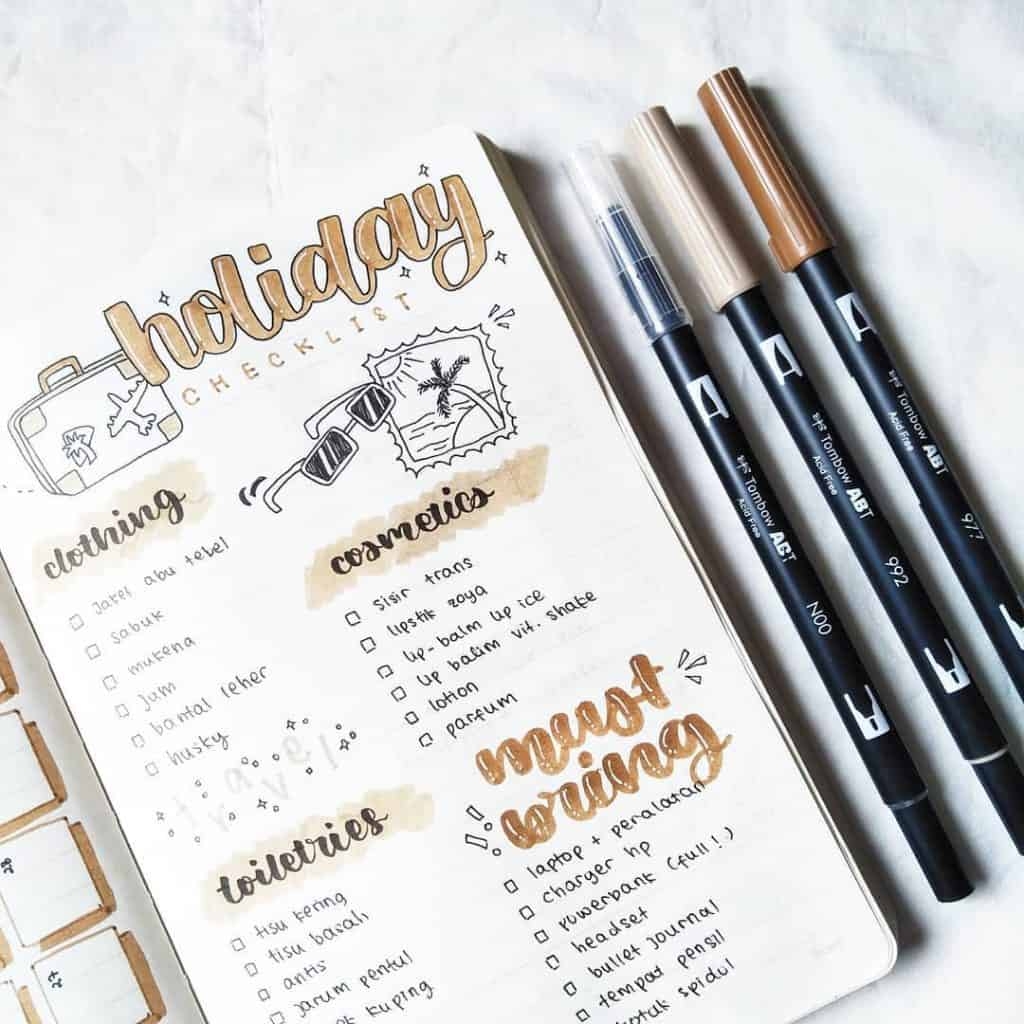 holiday
CHECKLIST
clothing
Jaket abu tebel
sabuk
mukena
jam
bantal leher
husky
travel
cosmetics
sisir trans
lipstik zoya
lip-balm lip ice
lip balm vit. shake
lotion
parfum
toiletries
tisu kering
tisu basah
antis
jarum pentul
kuping
must
bring
laptop + peralatan
charger hp
powerbank (full!)
headset
bullet journal
tempat pensil
kotak spidol
Tombow ABT
Acid Free
N00
Tombow ABT
Acid Free
992
Tombow ABT
Acid Free
977